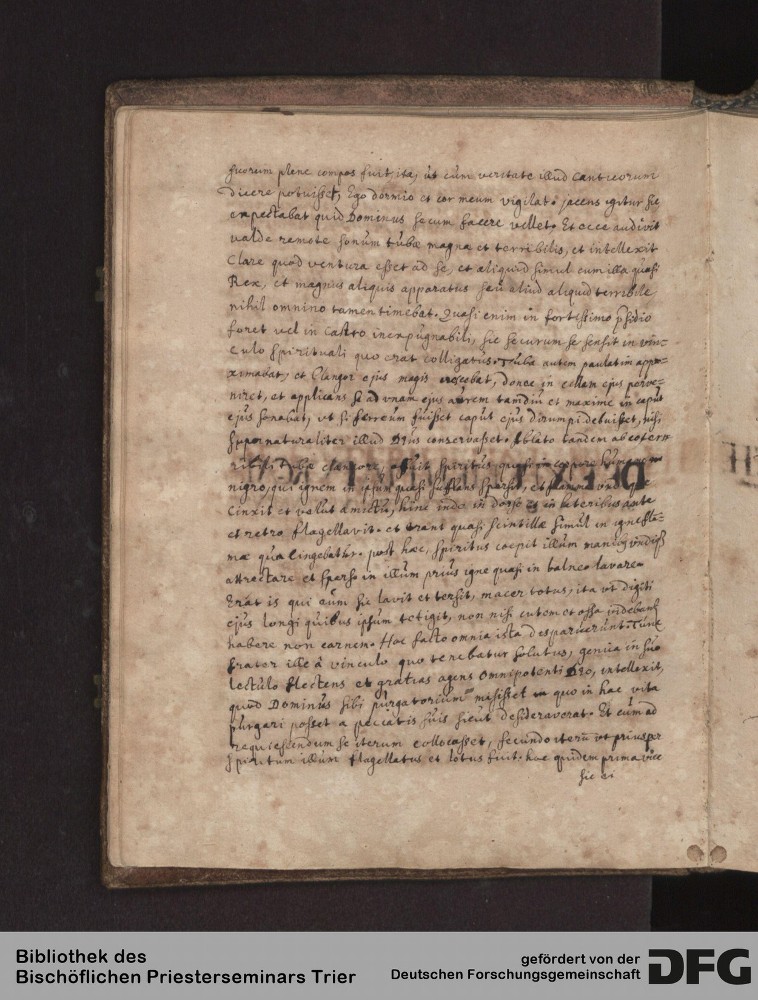 suorum plene compos fuit, ita, ut cum veritate illud Canticorum
dicere potuisset, Ego dormio et cor meum vigilat. jacens igitur sic
expectabat quid Dominus secum facere vellet. Et ecce audivit
valde remote sonum tubæ magnæ et terribilis, et intellexit
Clare quod ventura esset ad se, et aliquid simul cum illa quasi
Rex, et magnus aliquis apparatus seu aliud aliquid terribile,
nihil omnino tamen timebat. Quasi enim in fortissimo præsidio
foret vel in Castro inexpugnabili, sic securum se sensit in vin=
culo spirituali quo erat colligatus. Tuba autem paulatim appro=
ximabat, et Clangor ejus magis crescebat, donec in cellam ejus perve=
niret, et applicans se ad vnam ejus aurem tamdiu et maxime in caput
ejus sonabat, vt si ferreum fuisset caput ejus disrumpi debuisset, nisi
supernaturaliter illud Deus conservasset. Ablato tandem ab eo terr
ribilis tubæ clangore, affuit spiritus, quasi in corpore
nigro, qui ignem in ipsum quasi sufflans sparsit, et
Cinxit et velut amictu, hinc inde in dorso et in lateribus ante
et retro flagellavit. et erant quasi scintillæ simul in igne fla=
mæ qua cingebatur. post hæc, spiritus coepit illum manibus undiq
attrectare et sperso in illum prius igne quasi in balneo lavare.
Erat is qui eum sic lavit et tersit, macer totus, ita vt digiti
ejus longi quibus ipsum tetigit, non nisi cutem et ossa
habere non carnem. Hoc facto omnia ista desparuerunt. Tunc
frater ille â vinculo quo tenebatur solutus, genua in suo
lectulo flectens et gratias agens omnipotenti Deo, intellexit,
quod Dominus sibi purgatorium misisset in quo in hac vita
purgari posset a peccatis suis sicut desideraverat. Et cum ad
requiescendum se iterum collocasset, secundo iterum vt prius per
spiritum illum flagellatus et lotus fuit. hac quidem prima vice
sic ei
Bibliothek des
Bischöflichen Priesterseminars Trier
gefördert von der
Deutschen Forschungsgemeinschaft
DFG